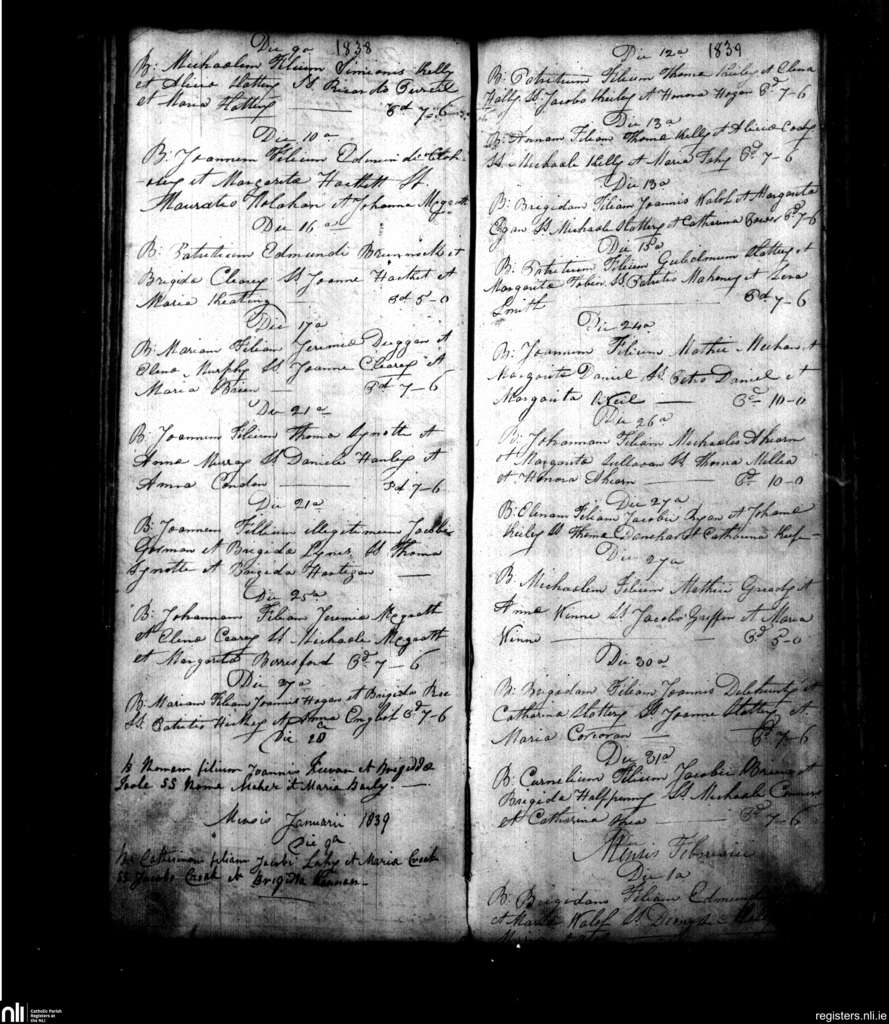 Die 9a 1838
B: Michaelem Filium Simionis Kelly
et Alicia Slattery SS Ricardo
et Maria Slattery 7-6
Die 10a
B: Joannem Filium Edmundi
et Margarita Hackett SS.
Holohan et Johanna
Die 16a
B: Patritium Edmundi Brunnock et
Brigida Clearey SS Joanne Hacket et
Maria Keating 5-0
Die 17a
B: Mariam Filiam Jeremia Duggan et
Elena Murphy SS Joanne Clearey et
Maria Brien 7-6
Die 21a
B: Joannem Filium Thoma Synotte et
Anna Murray SS Daniele Hanley et
Anna Condon 7-6
Die 21a
B: Joannem Fillium illegitimum Jacobi
Gorman et Brigida Lyner SS Thoma
Synotte et Brigida Hartigan
Die 25a
B: Johannam Filiam Jeremia Mcgrath
et Elena Carey SS Michaele Mcgrath
et Margarita Berresford 7-6
Die 27a
B: Mariam Filiam Joannis Hogan et Brigida
SS Patritio Hickey et Anna English 7-6
Die 28
filium Joannis Kirwan et Brigidda
Poole SS Meher et Maria Baily.
Mensis Januarii 1839
Die 9a
Catherinam filiam Jacobi Lahy et Maria Croak
SS Jacobo Croak et Brigidda
Die 12a 1839
B: Patritium Filium Thoma Kieley et Elena
Hally SS Jacobo Kieley et Honora Hogan 7-6
Die 13a
B: Annam Filiam Thoma Kelly et Alicia Cody
SS Michaele Kelly et Maria Fahy 7-6
Die 13a
B: Brigidam Filiam Joannis Walsh et Margarita
Egan SS Michaele Slattery et Catharina Power 7-6
Die 15a
B: Patritium Filium Gulielmum Slattery et
Margarita Tobin SS Patritio Mahoney et
Smith 7-6
Die 24a
B: Joannem Filium Mathei Meehan et
Margarita Daniel SS Petro Daniel et
Margarita Neil 10-0
Die 26a
B: Johannam Filiam Michaelis Ahearn
et Margarita Sullavan SS Thoma Millea
et Honora Ahearn 10-0
Die 27a
B: Elenam Filiam Jacobi Ryan et Johana
Kieley SS Thoma et Catharina
Die 27a
B: Michaelem Filium Mathei Gready et
Anna Winne SS Jacobo Griffin et Maria
Winne 5-0
Die 30a
B: Brigidam Filiam Joannis Delehunty et
Catharina Slattery SS Joanne Slattery et
Maria Corcoran 7-6
Die 31a
B: Curnelium Filium Jacobi Brien et
Brigida Halfpenny SS Michaele Connors
et Catharina Shea 7-6
Mensis Februarii
Die 1a
B: Brigidam Filiam
et Maria Walsh SS
nli
Catholic Parish
Registers at
the NLI
registers.nli.ie